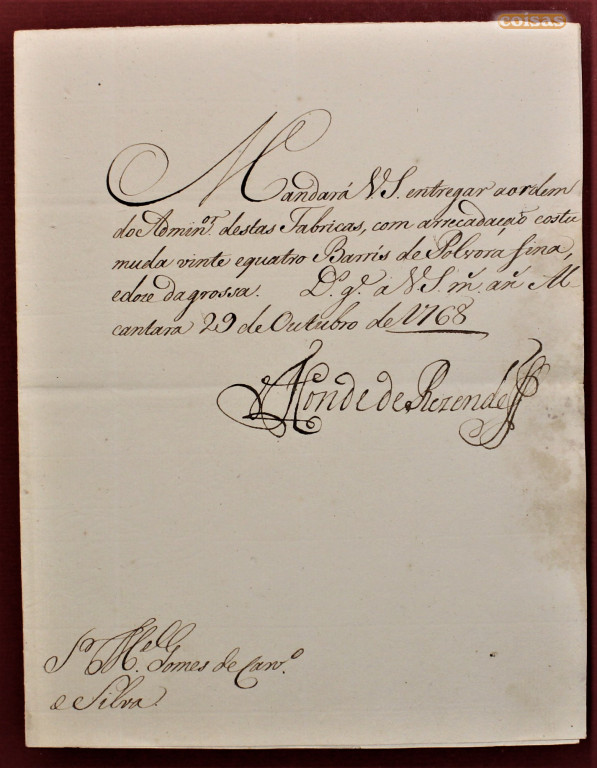 coisas
Mandará V S. entregar aordem
do Admin.or destas Fabricas, com arrecadação costu
muda vinte equatro Barris de Polvora fina,
edoze dagrossa. D.s g.e a V S. m.s an.s Al-
cantara 29 de Outubro de 1768
Conde de Rezende
Sr M.el Gomes de Carv.o
e Silva.